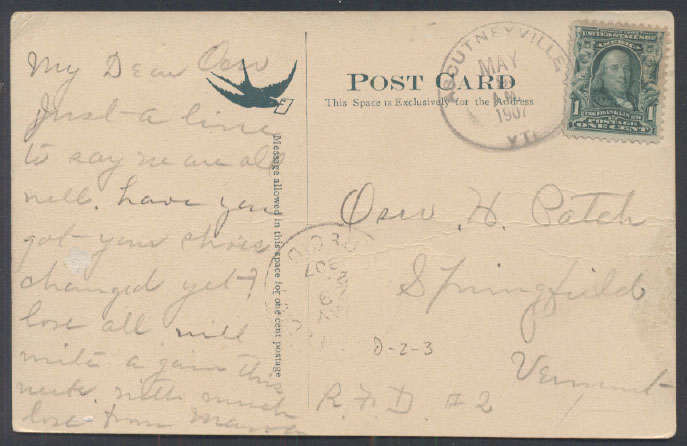 My Dear Osw
Just a line
to say we are all
well. have you
got your shoes
changed yet?
love all will
write again this
week. with much
love from
Message allowed in this space for one cent postage
POST CARD
This Space is Exclusively for the Address
ASCUTNEYVILLE,
MAY
A.M.
1907
VT.
UNITED STATES OF
AMERICA
1 1
POSTAGE
ONE CENT
H. Patch
Springfield
Vermont
R.F.D. #2
D-2-3